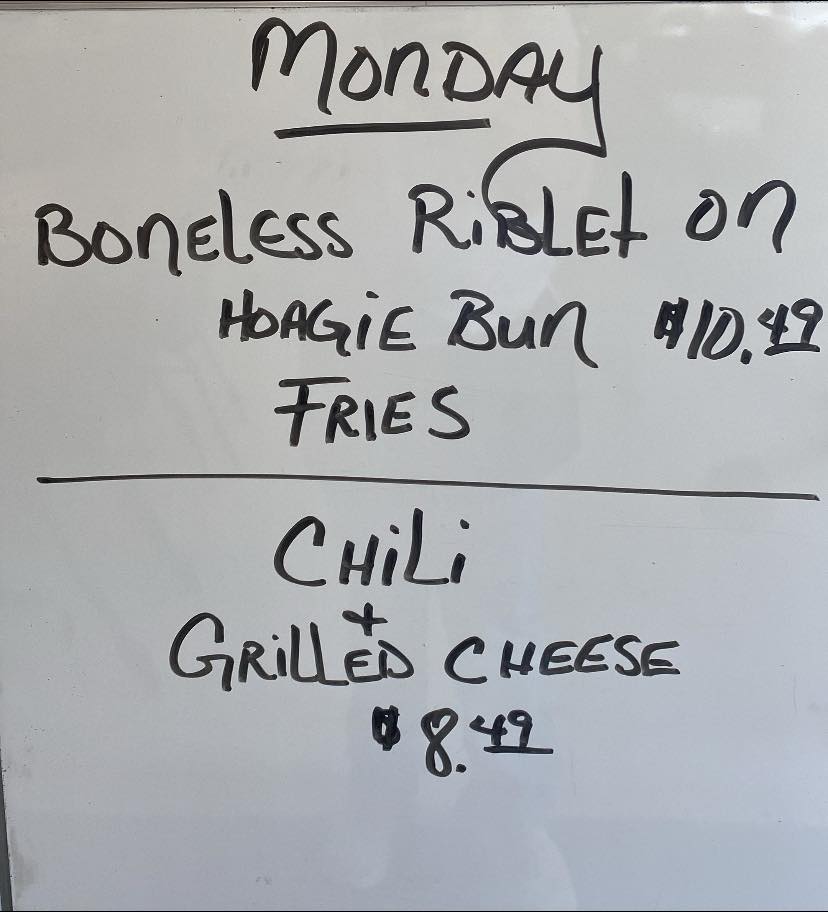 MONDAY
BONELESS RiBLEt ON
HOAGiE BUN $10.49
FRIES
CHiLi
+
GRiLLED CHEESE
$8.49